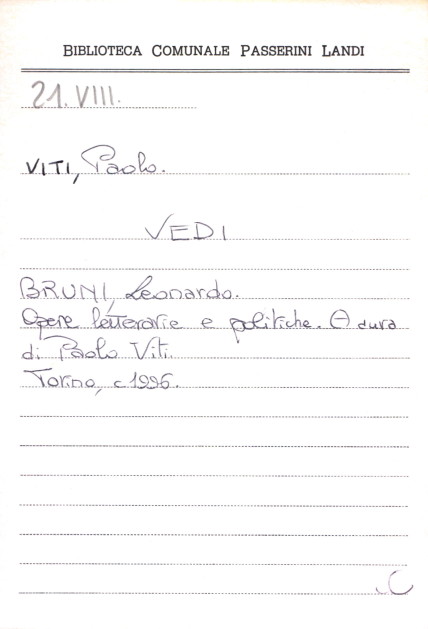 BIBLIOTECA COMUNALE PASSERINI LANDI
21.VIII.
VITI, Paolo.
VEDI
BRUNI, Leonardo.
Opere letterarie e politiche. A cura
di Paolo Viti.
Torino, c1996.